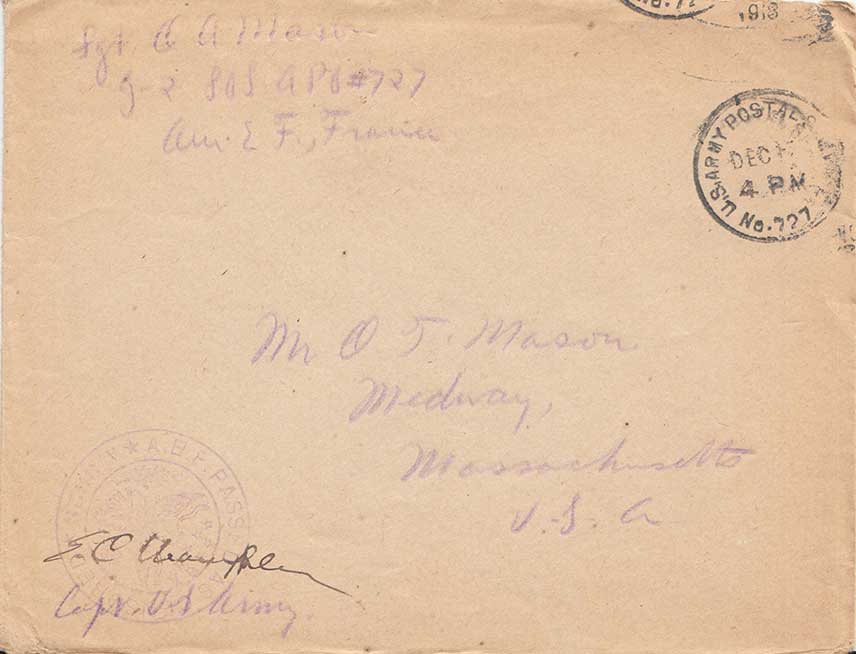 Sgt. C A Mason
G-2 SOS APO #727
Am. E F., France
1918
U.S. ARMY POSTAL
DEC
4 PM
No. 727
Mr O T. Mason
Medway,
Massachusetts
U.S.A
A.E.F. PASSED
E C
Capt. U S Army.